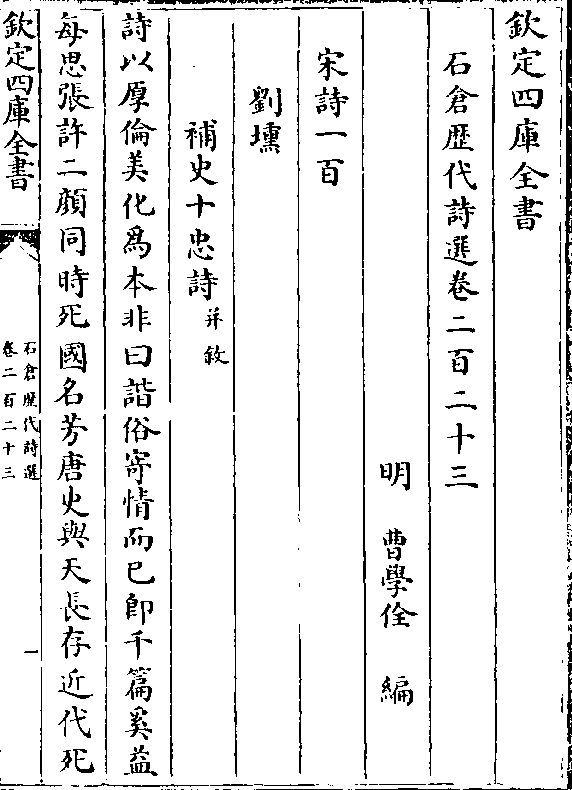 欽定四庫全書
石倉歴代詩選卷二百二十三
明 曹學佺 編
宋詩一百
劉壎
補史十忠詩并敘
詩以厚倫美化爲本非曰諧俗寄情而已即千篇奚益
每思張許二顔同時死國名芳唐史與天長存近代死
欽定四庫全書
石倉歴代詩選
卷二百二十三
一